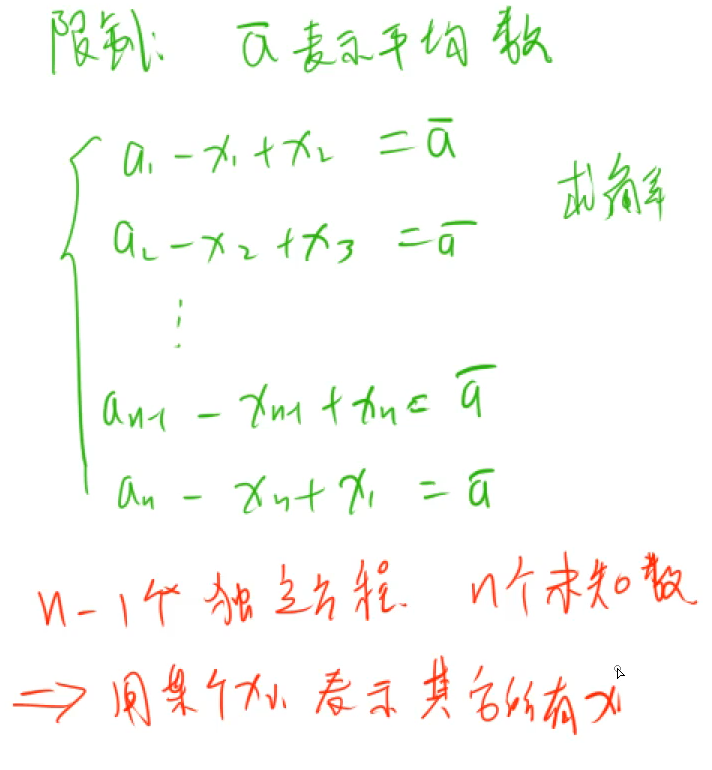 限制: ā 表示平均数
a₁ - x₁ + x₂ = ā
a₂ - x₂ + x₃ = ā
求解
⋮
aₙ₋₁ - xₙ₋₁ + xₙ = ā
aₙ - xₙ + x₁ = ā
n-1个独立方程. n个未知数
⇒ 用某个xᵢ 表示其它所有x